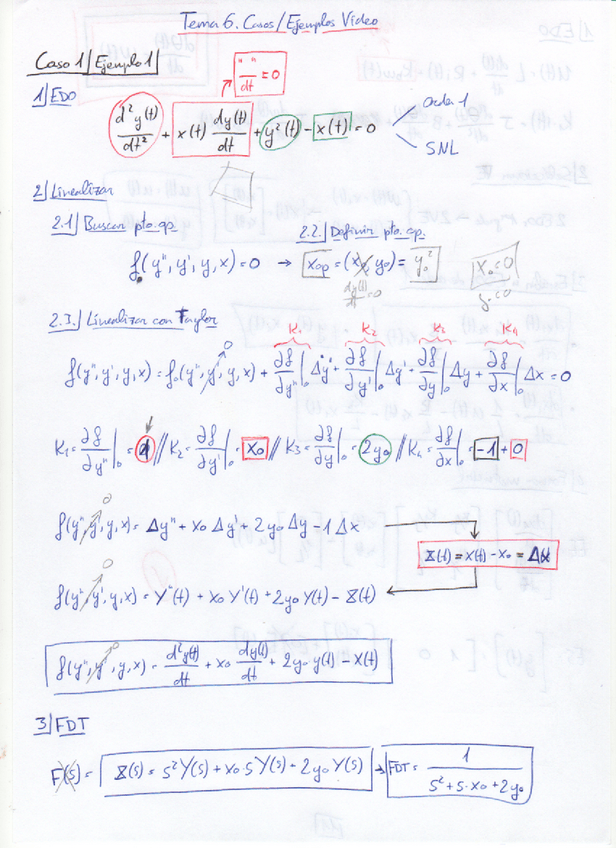 Tema 6. Casos/Ejemplos Video
Caso 1/ Ejemplo 1
" " / dt = 0
1) EDO
d²y(t)/dt² + x(t) dy(t)/dt + y²(t) - x(t) = 0
Orden 1
SNL
2) Linealizar
2.1) Buscar pto. op.
f₀(y'', y', y, x) = 0 →
2.2.) Definir pto. op.
xop = (x₀, y₀) = y₀²
dy(t)/dt = 0
x₀ = 0
y₀ = 0
2.3.) Linealizar con Taylor
K₁ K₂ K₃ K₄
f(y'', y', y, x) = f₀(y'', y', y, x) + ∂f/∂y''|₀ Δy'' + ∂f/∂y'|₀ Δy' + ∂f/∂y|₀ Δy + ∂f/∂x|₀ Δx = 0
0
K₁ = ∂f/∂y''|₀ = 1 // K₂ = ∂f/∂y'|₀ = x₀ // K₃ = ∂f/∂y|₀ = 2y₀ // K₄ = ∂f/∂x|₀ = -1 + 0
0
f(y'', y', y, x) = Δy'' + x₀ Δy' + 2y₀ Δy - 1 Δx
X(t) = x(t) - x₀ = Δx
0
f(y'', y', y, x) = Y''(t) + x₀ Y'(t) + 2y₀ Y(t) - X(t)
0
f(y'', y', y, x) = d²y(t)/dt + x₀ dy(t)/dt + 2y₀·y(t) - x(t)
3) FDT
F(s) = X(s) = s² Y(s) + x₀·s Y(s) + 2y₀ Y(s) → FDT = 1 / s² + s·x₀ + 2y₀